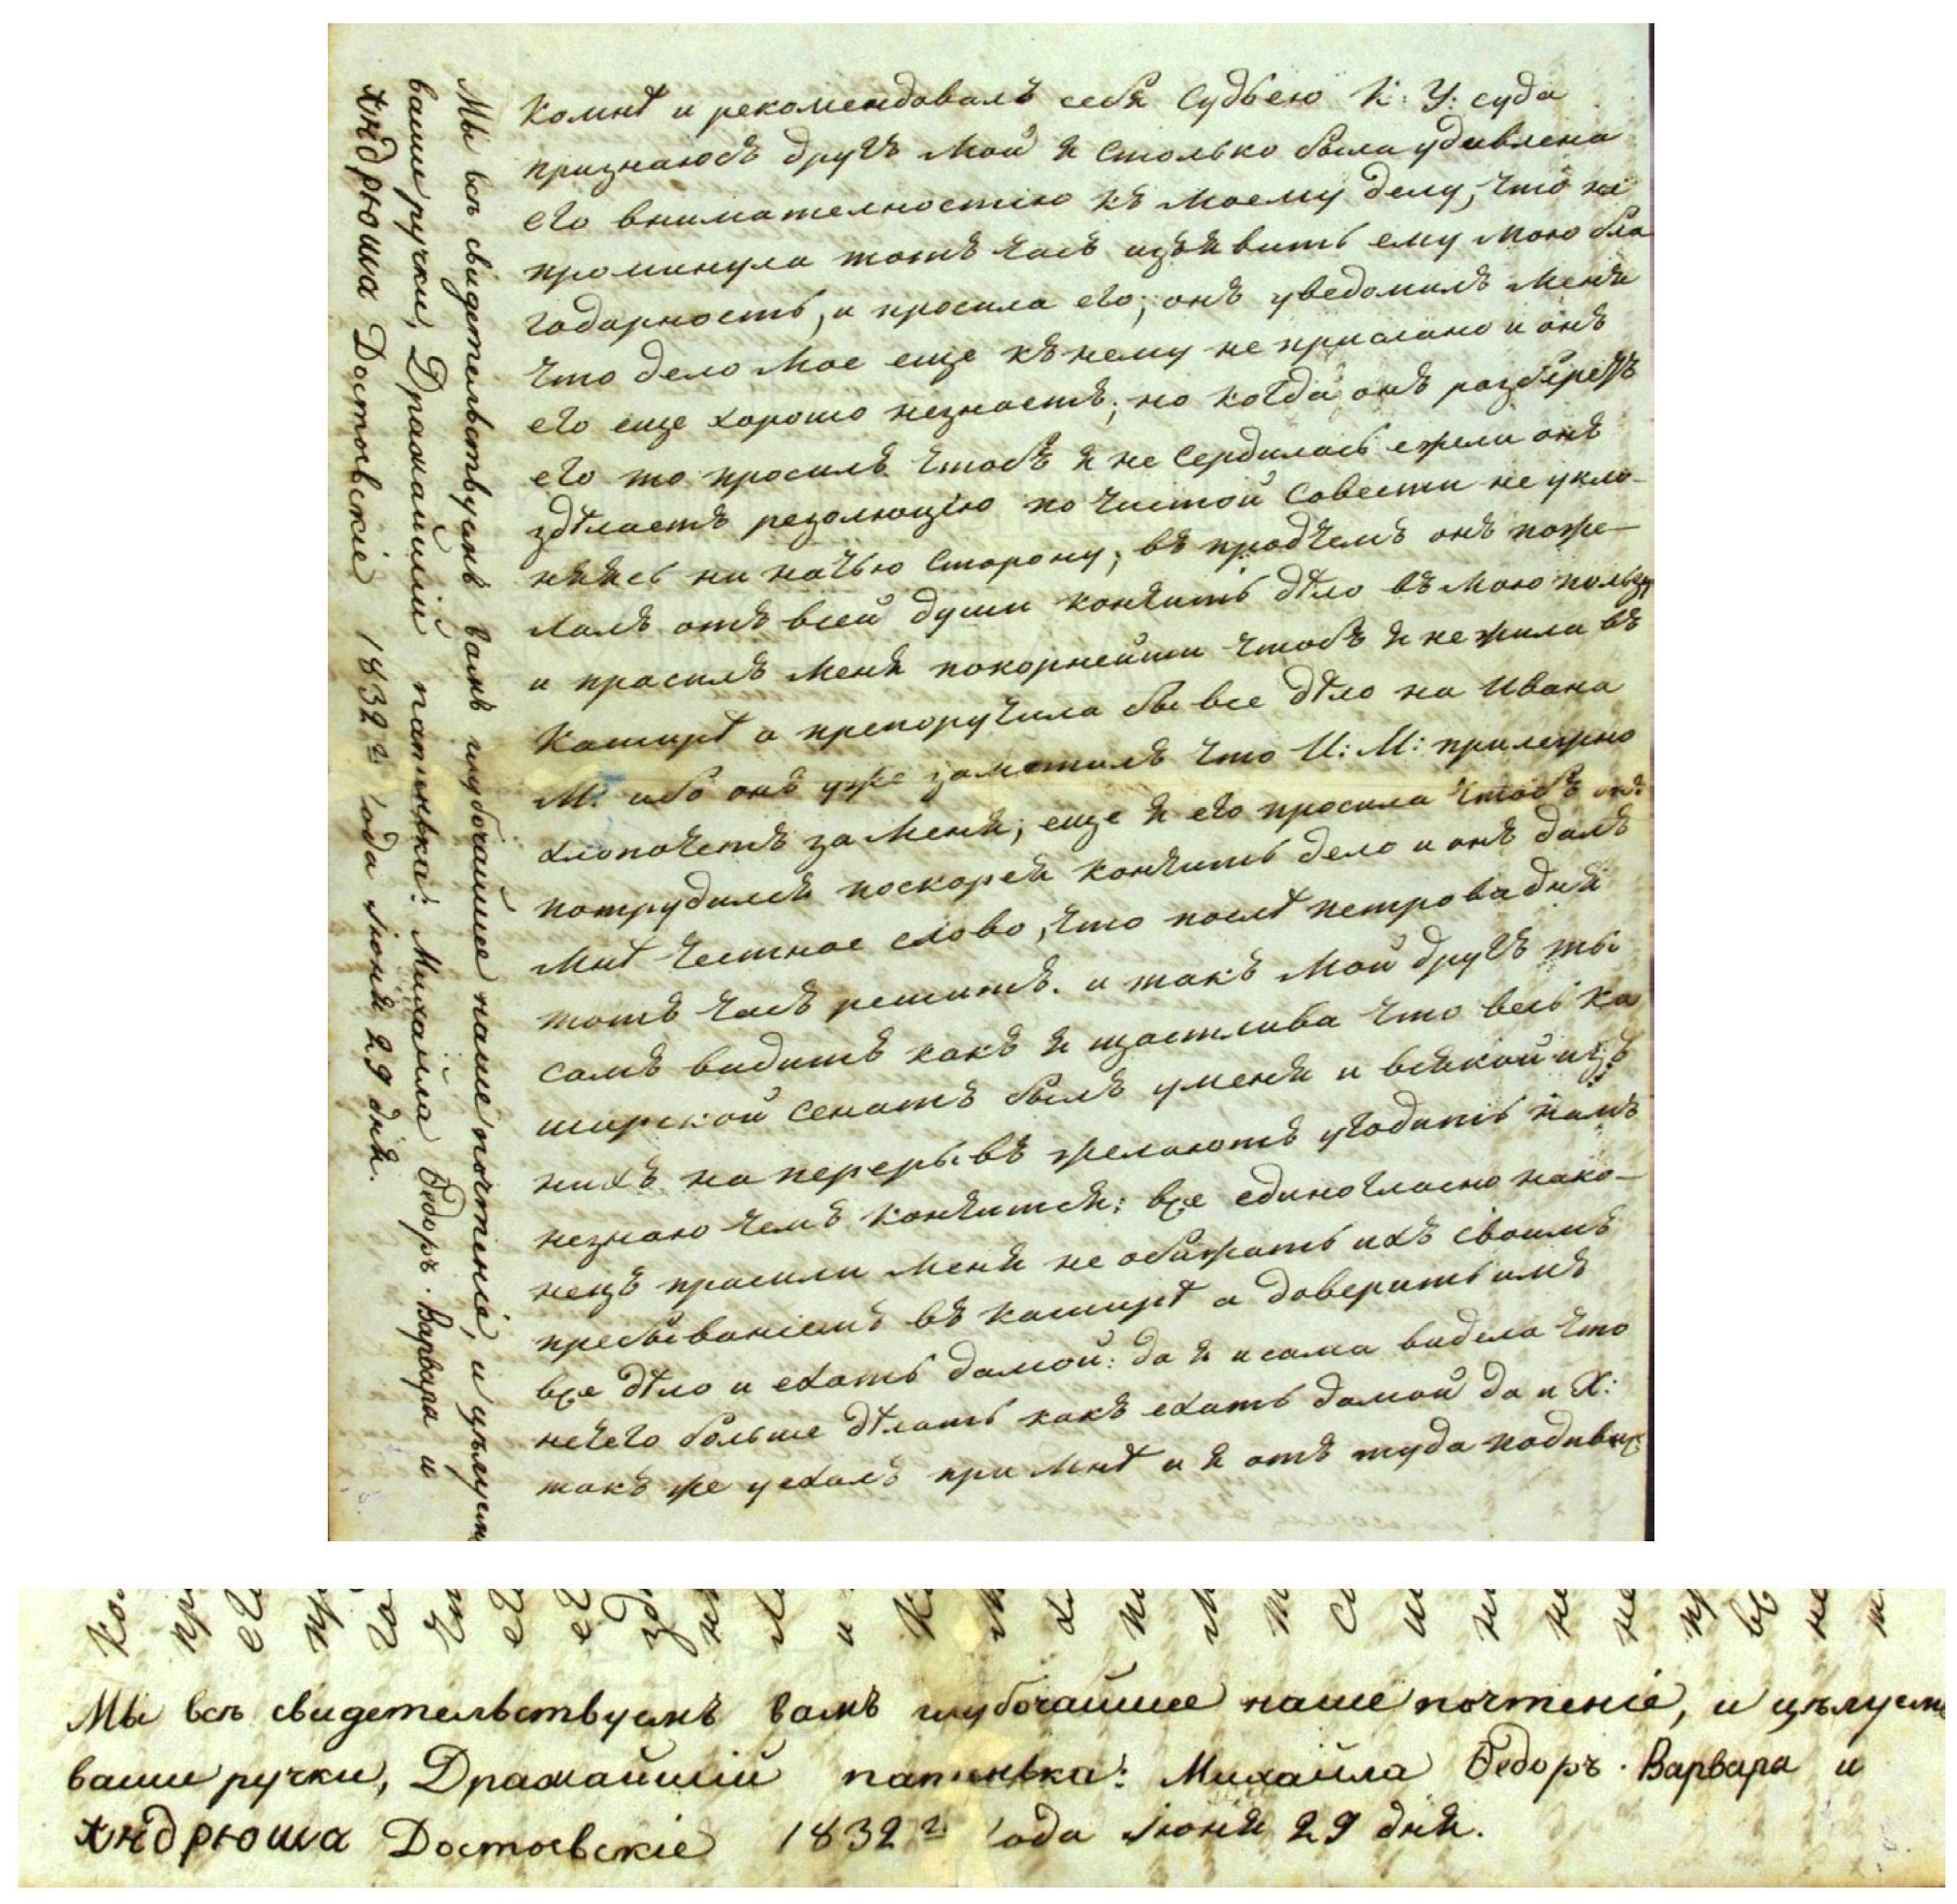 комнѣ и рекомендовалъ себя Судьею К: У: суда
признаюсь другъ мой я столько была удивлена
его внимателностію къ моему делу, что не
проминула тотъ часъ изъявить ему мою бла
годарность, и просила его; онъ уведомилъ меня
что дело мое еще къ нему не прислано и онъ
его еще хорошо незнаетъ; но когда онъ разберетъ
его то просилъ чтобъ я не сердилась ежели онъ
здѣлаетъ резолюцію по чистой совести не укло-
няясь ни начью сторону, въ продчемъ онъ поже-
лалъ отъ всей души кончить дѣло въ мою пользу
и прасилъ меня покорнейши чтобъ я не жила въ
Каширѣ а препоручила бы все дѣло на Ивана
М: ибо онъ уже заметилъ что И: М: прилежно
хлопочетъ за меня; еще я его просила чтобъ онъ
потрудился поскорей кончить дело и онъ далъ
мнѣ честное слово, что послѣ петрова дня
тотъ часъ решитъ. и такъ мой другъ ты
самъ видишъ какъ я щастлива что весь ка
ширской сенатъ былъ у меня и всякой изъ
нихъ на перерывъ желаютъ угодить намъ
незнаю чемъ кончится: все единогласно нако-
нецъ прасили меня не обижать ихъ своимъ
пребываніемъ въ Каширѣ а доверить имъ
все дѣло и ехать дамой: да я и сама видела что
нечего больше дѣлать какъ ехать дамой да и Х:
такъ же уехалъ при мнѣ и я отъ туда
Мы всѣ свидетельствуемъ вамъ глубочайшее наше почтеніе, и цѣлуемъ
ваши ручки, Дражайшій папинька: Михайла Ѳедоръ. Варвара и
Андрюша Достоевскіе 1832 г. года Іюня 29 дня.
Мы всѣ свидетельствуемъ вамъ глубочайшее наше почтеніе, и цѣлуемъ
ваши ручки, Дражайшій папинька: Михайла Ѳедоръ. Варвара и
Андрюша Достоевскіе 1832 г. года Іюня 29 дня.